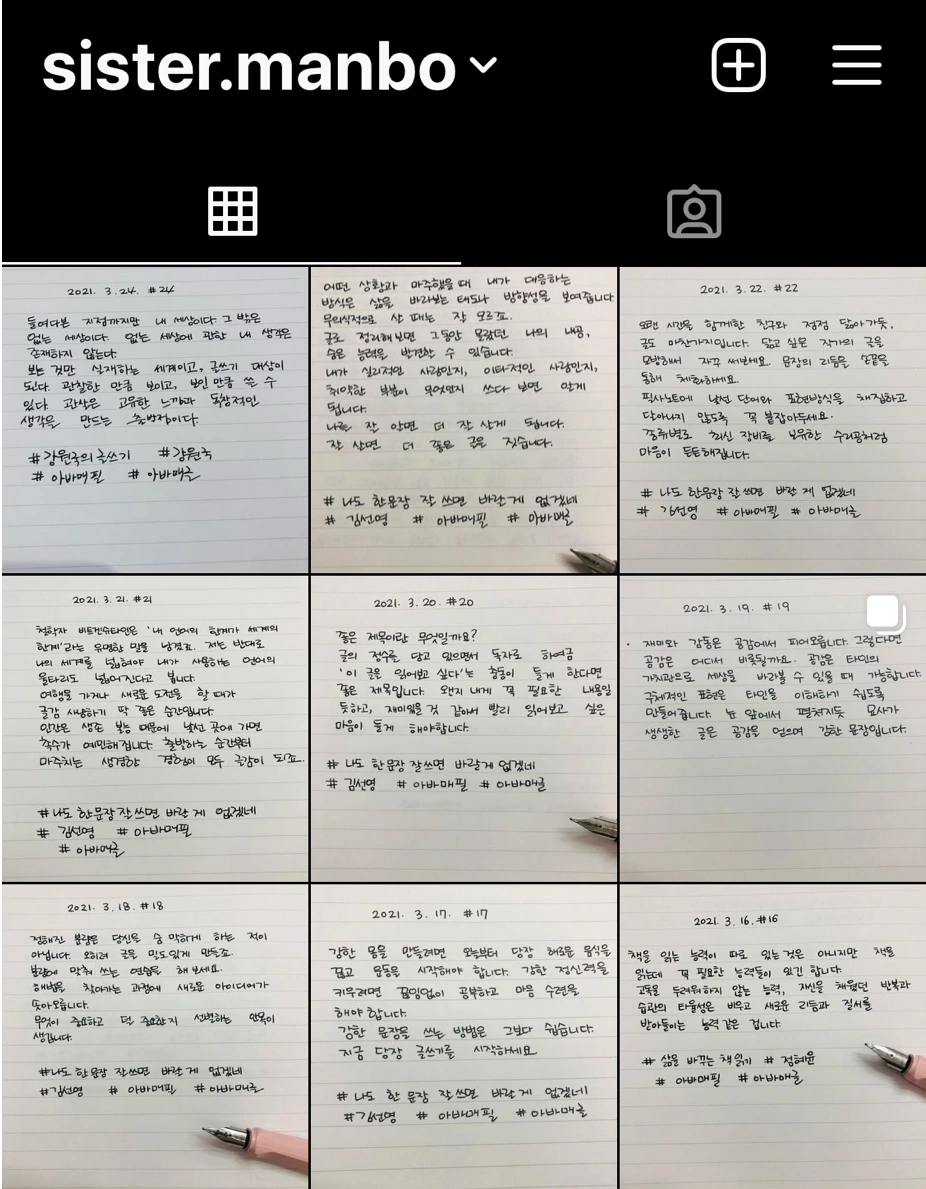 sister.manbo
2021. 3.24. #24
들여다본 지점까지만 내 세상이다. 그 밖은
없는 세상이다. 없는 세상에 관한 내 생각은
존재하지 않는다.
보는 것만 실재하는 세계이고, 글쓰기 대상이
된다. 관찰한 만큼 보이고, 보인 만큼 쓸 수
있다. 관찰은 고유한 느낌과 독창적인
생각을 만드는 출발점이다.
#강원국의 글쓰기 #강원국
# 아바매필 # 아바매글
어떤 상황과 마주했을 때 내가 대응하는
방식은 삶을 바라보는 태도나 방향성을 보여줍니다
무의식적으로 살 때는 잘 모르죠.
글로 정리해보면 그동안 몰랐던 나의 내공,
숨은 능력을 발견할 수 있습니다.
내가 실리적인 사람인지, 이타적인 사람인지,
취약한 부분이 무엇인지 쓰다 보면 알게
됩니다.
나를 잘 알면 더 잘 살게 됩니다.
잘 살면 더 좋은 글을 짓습니다.
# 나도 한문장 잘 쓰면 바랄 게 없겠네
# 김선영 # 아바매필 # 아바매글
2021. 3.22. #22
오랜 시간을 함께한 친구와 점점 닮아가듯,
글도 마찬가지입니다. 닮고 싶은 작가의 글을
모방해서 자꾸 써보세요. 문장의 리듬을 손끝을
통해 체화하세요.
필사노트에 낯선 단어와 표현방식을 채집하고
달아나지 않도록 꼭 붙잡아두세요.
종류별로 최신 장비를 보유한 수리공처럼
마음이 든든해집니다.
# 나도 한문장 잘 쓰면 바랄 게 없겠네
# 김선영 # 아바매필 # 아바매글
2021. 3. 21. #21
철학자 비트겐슈타인은 '내 언어의 한계가 세계의
한계'라는 유명한 말을 남겼죠. 저는 반대로
나의 세계를 넓혀야 내가 사용하는 언어의
울타리도 넓어진다고 봅니다.
여행을 가거나 새로운 도전을 할 때가
글감 생성하기 딱 좋은 순간입니다.
인간은 생존 본능 때문에 낯선 곳에 가면
촉수가 예민해집니다. 출발하는 순간부터
마주치는 생경한 경험이 모두 글감이 되죠.
#나도 한문장 잘 쓰면 바랄 게 없겠네
# 김선영 # 아바매필
# 아바매글
2021. 3.20. #20
좋은 제목이란 무엇일까요?
글의 정수를 담고 있으면서 독자로 하여금
'이 글은 읽어보고 싶다'는 충동이 들게 한다면
좋은 제목입니다. 왠지 내게 꼭 필요한 내용일
듯하고, 재미있을 것 같아서 빨리 읽어보고 싶은
마음이 들게 해야합니다.
# 나도 한문장 잘 쓰면 바랄 게 없겠네
# 김선영 # 아바매필 # 아바매글
2021. 3. 19. # 19
재미와 감동은 공감에서 피어오릅니다. 그렇다면
공감은 어디서 비롯될까요. 공감은 타인의
가치관으로 세상을 바라볼 수 있을 때 가능합니다.
구체적인 표현은 타인을 이해하기 쉽도록
만들어줍니다. 눈 앞에서 펼쳐지듯 묘사가
생생한 글은 공감을 얻으며 강한 문장입니다.
2021. 3.18. #18
정해진 분량은 당신을 숨 막히게 하는 적이
아닙니다. 오히려 글을 밀도있게 만들죠.
분량에 맞춰 쓰는 연습을 해 보세요.
해법을 찾아가는 과정에 새로운 아이디어가
솟아오릅니다.
무엇이 중요하고 덜 중요한지 선별하는 안목이
생깁니다.
#나도 한 문장 잘 쓰면 바랄 게 없겠네
#김선영 # 아바매필 # 아바매글
2021. 3. 17. #17
강한 몸을 만들려면 오늘부터 당장 해로운 음식을
끊고 운동을 시작해야 합니다. 강한 정신력을
키우려면 끊임없이 공부하고 마음 수련을
해야 합니다.
강한 문장을 쓰는 방법은 그보다 쉽습니다.
지금 당장 글쓰기를 시작하세요.
# 나도 한 문장 잘 쓰면 바랄 게 없겠네
#김선영 # 아바매필 # 아바매글
2021. 3.16. #16
책을 읽는 능력이 따로 있는 것은 아니지만 책을
읽는데 꼭 필요한 능력들이 있긴 합니다.
고독을 두려워하지 않는 능력, 자신을 채웠던 반복과
습관의 타율성은 비우고 새로운 리듬과 질서를
받아들이는 능력 같은 겁니다.
# 삶을 바꾸는 책 읽기 # 정혜윤
# 아바매필 # 아바매글